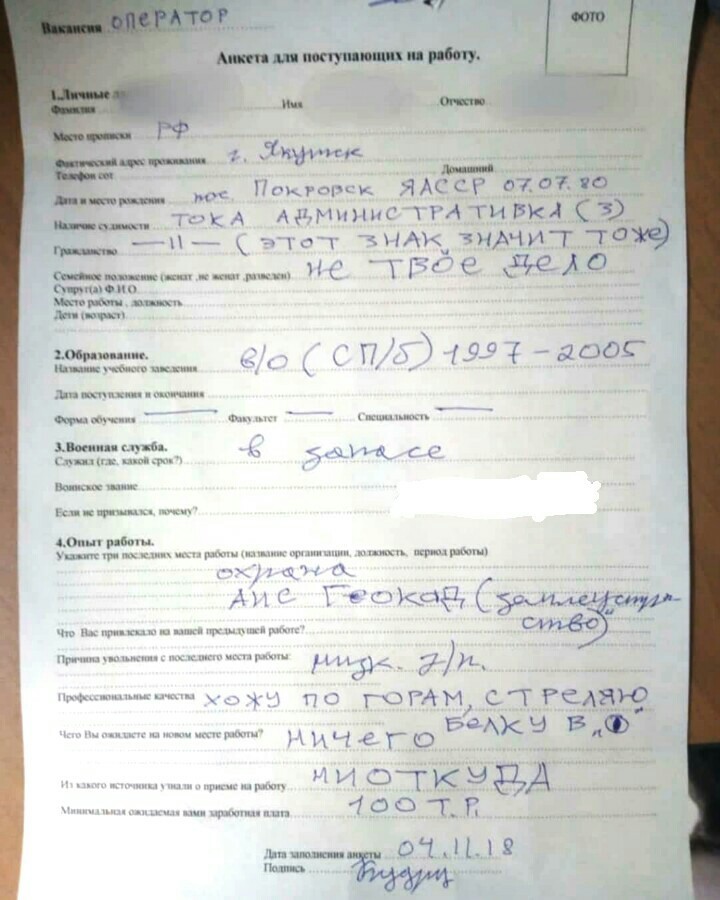 Вакансия ОПЕРАТОР
ФОТО
Анкета для поступающих на работу.
1.Личные
Фамилия Имя Отчество
Место прописки РФ
Фактический адрес проживания г. Якутск
Телефон сот Домашний
Дата и место рождения пос. Покровск ЯАССР 07.07.80
Наличие судимости ТОКА АДМИНИСТРАТИВКА (3)
Гражданство —11— (ЭТОТ ЗНАК ЗНАЧИТ ТОЖЕ)
Семейное положение (женат ,не женат ,разведен) НЕ ТВОЕ ДЕЛО
Супруг(а) Ф.И.О.
Место работы , должность
Дети (возраст)
2.Образование.
Название учебного заведения в/о (СП/б) 1997-2005
Дата поступления и окончания
Форма обучения — Факультет — Специальность —
3.Военная служба.
Служил (где, какой срок?) в запасе
Воинское звание
Если не призывался, почему?
4.Опыт работы.
Укажите три последних места работы (название организации, должность, период работы)
охрана
АИС ГЕОКАД (землеустрой-
ство)
Что Вас привлекало на вашей предыдущей работе?
Причина увольнения с последнего места работы: низк. з/п.
Профессиональные качества ХОЖУ ПО ГОРАМ, СТРЕЛЯЮ
БЕЛКУ В „О"
Чего Вы ожидаете на новом месте работы? НИЧЕГО
Из какого источника узнали о приеме на работу НИОТКУДА
Минимальная ожидаемая вами заработная плата 100 Т.Р.
Дата заполнения анкеты 04.11.18
Подпись